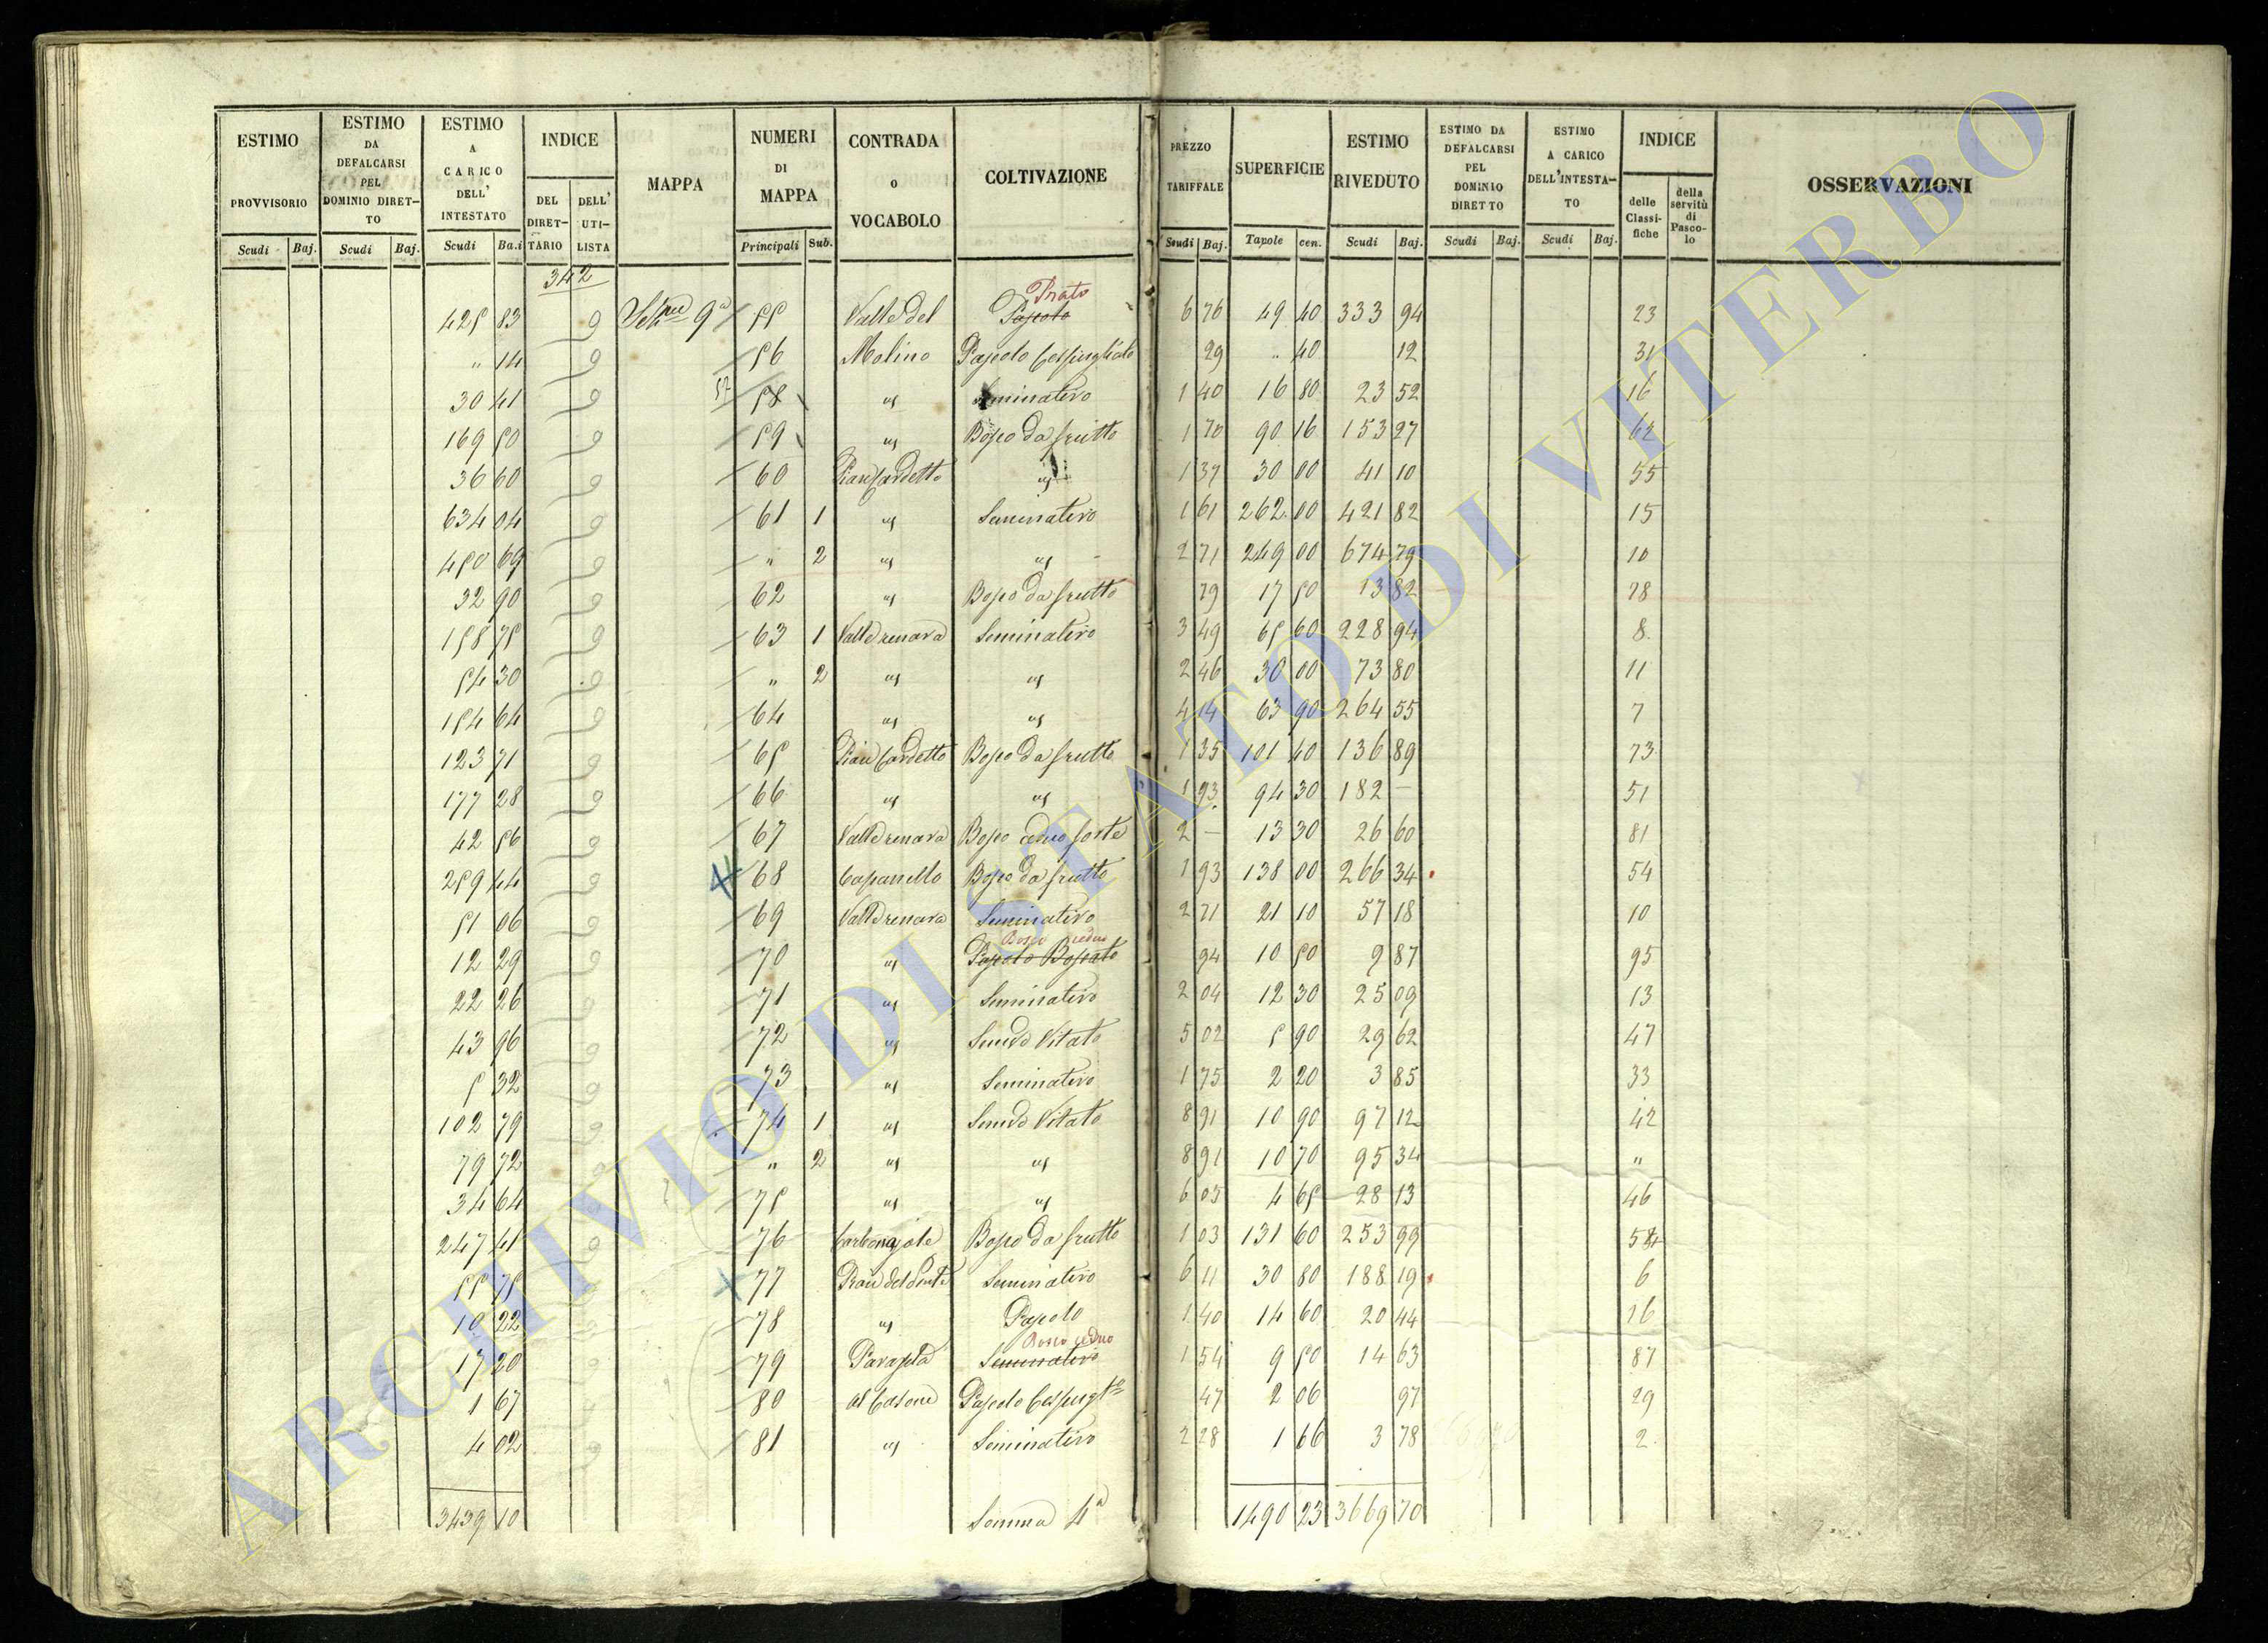 ESTIMO PROVVISORIO
Scudi Baj.
ESTIMO DA DEFALCARSI PEL DOMINIO DIRET-TO
Scudi Baj.
ESTIMO A CARICO DELL' INTESTATO
Scudi Ba.i
INDICE
DEL DIRET-TARIO
DELL' UTI-LISTA
MAPPA
NUMERI DI MAPPA
Principali Sub.
CONTRADA o VOCABOLO
COLTIVAZIONE
PREZZO TARIFFALE
Scudi Baj.
SUPERFICIE
Tavole cen.
ESTIMO RIVEDUTO
Scudi Baj.
ESTIMO DA DEFALCARSI PEL DOMINIO DIRETTO
Scudi Baj.
ESTIMO A CARICO DELL'INTESTA-TO
Scudi Baj.
INDICE
delle Classi-fiche
della servitù di Pasco-lo
OSSERVAZIONI
342
Prato
425 83 9 9a 55 Valle del Pascolo 6 76 49 40 333 94 23
" 14 9 56 Molino Pascolo Cespugliato 29 " 40 12 31
57
30 41 9 58 " Seminativo 1 40 16 80 23 52 16
169 50 9 59 " Bosco da frutto 1 70 90 16 153 27 62
36 60 9 60 Pian Cardetto " 1 37 30 00 41 10 55
634 04 9 61 1 " Seminativo 1 61 262 00 421 82 15
450 69 9 " 2 " " 2 71 249 00 674 79 10
32 90 9 62 " Bosco da frutto 79 17 50 13 82 78
158 75 9 63 1 Valle renara Seminativo 3 49 65 60 228 94 8
54 30 9 " 2 " " 2 46 30 00 73 80 11
154 64 9 64 " " 4 14 63 90 264 55 7
123 71 9 65 Pian Cardetto Bosco da frutto 1 35 101 40 136 89 73
177 28 9 66 " " 1 93 94 30 182 — 51
42 56 9 67 Valle renara Bosco ceduo forte 2 — 13 30 26 60 81
259 44 9 68 Capannello Bosco da frutto 1 93 138 00 266 34 54
51 06 9 69 Valle renara Seminativo 2 71 21 10 57 18 10
Bosco ceduo
12 29 9 70 " Pascolo Boscato 94 10 50 9 87 95
22 26 9 71 " Seminativo 2 04 12 30 25 09 13
43 96 9 72 " Semvo Vitato 5 02 5 90 29 62 47
5 32 9 73 " Seminativo 1 75 2 20 3 85 33
102 79 9 74 1 " Semvo Vitato 8 91 10 90 97 12 42
79 72 9 " 2 " " 8 91 10 70 95 34 "
34 64 9 75 " " 6 05 4 65 28 13 46
247 41 9 76 Carbonajole Bosco da frutto 1 03 131 60 253 99 54
55 75 9 77 Pian del Ponte Seminativo 6 11 30 80 188 19 6
10 22 9 78 " Pascolo 1 40 14 60 20 44 16
Bosco ceduo
17 20 9 79 Seminativo 1 54 9 50 14 63 87
1 67 9 80 al Casone Pascolo Cespugto 47 2 06 97 29
4 02 9 81 " Seminativo 2 28 1 66 3 78 2
3439 10 Somma 4a 1490 23 3669 70
ARCHIVIO DI STATO DI VITERBO